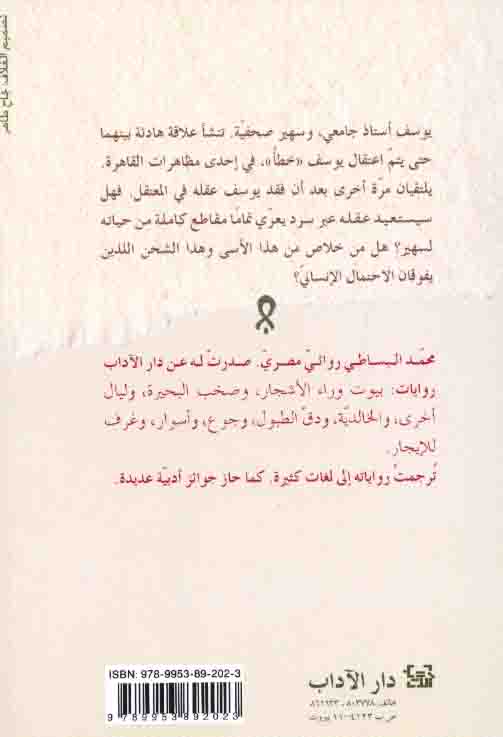 تصميم الغلاف: نجاح طاهر
يوسف أستاذ جامعي، وسهير صحفيّة. تنشأ علاقة هادئة بينهما
حتى يتمّ اعتقال يوسف «خطأً»، في إحدى مظاهرات القاهرة.
يلتقيان مرّة أخرى بعد أن فقد يوسف عقله في المعتقل. فهل
سيستعيد عقله عبر سرد يعرّي تمامًا مقاطع كاملة من حياته
لسهير؟ هل من خلاص من هذا الأسى وهذا الشحن اللذين
يفوقان الاحتمال الإنسانيّ؟
محمّد البساطي روائيّ مصريّ. صدرتْ له عن دار الآداب
روايات: بيوت وراء الأشجار، وصخب البحيرة، وليال
أخرى، والخالديّة، ودقّ الطبول، وجوع، وأسوار، وغرف
للإيجار.
تُرجمتْ رواياته إلى لغات كثيرة. كما حاز جوائز أدبيّة عديدة.
ISBN: 978-9953-89-202-3
9 789953 892023
دار الآداب
هاتف: ٨٠٣٧٧٨ - ٨٦١٦٣٣
ص.ب ٤١٢٣-١١ بيروت